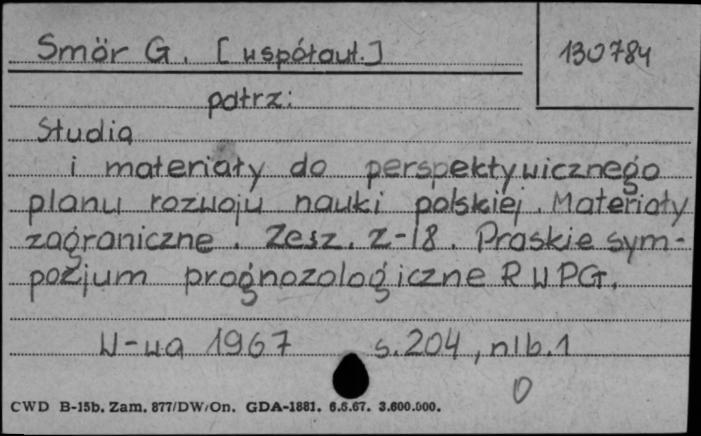 Smör G. [współaut.]
130784
patrz:
Studia
i materiały do perspektywicznego
planu rozwoju nauki polskiej. Materiały
zagraniczne. Zesz. Z-18. Praskie sym-
pozjum prognozologiczne RWPG.
W-wa 1967 s.204, nlb.1
0
CWD B-15b. Zam. 877/DW/On. GDA-1881. 6.6.67. 3.600.000.